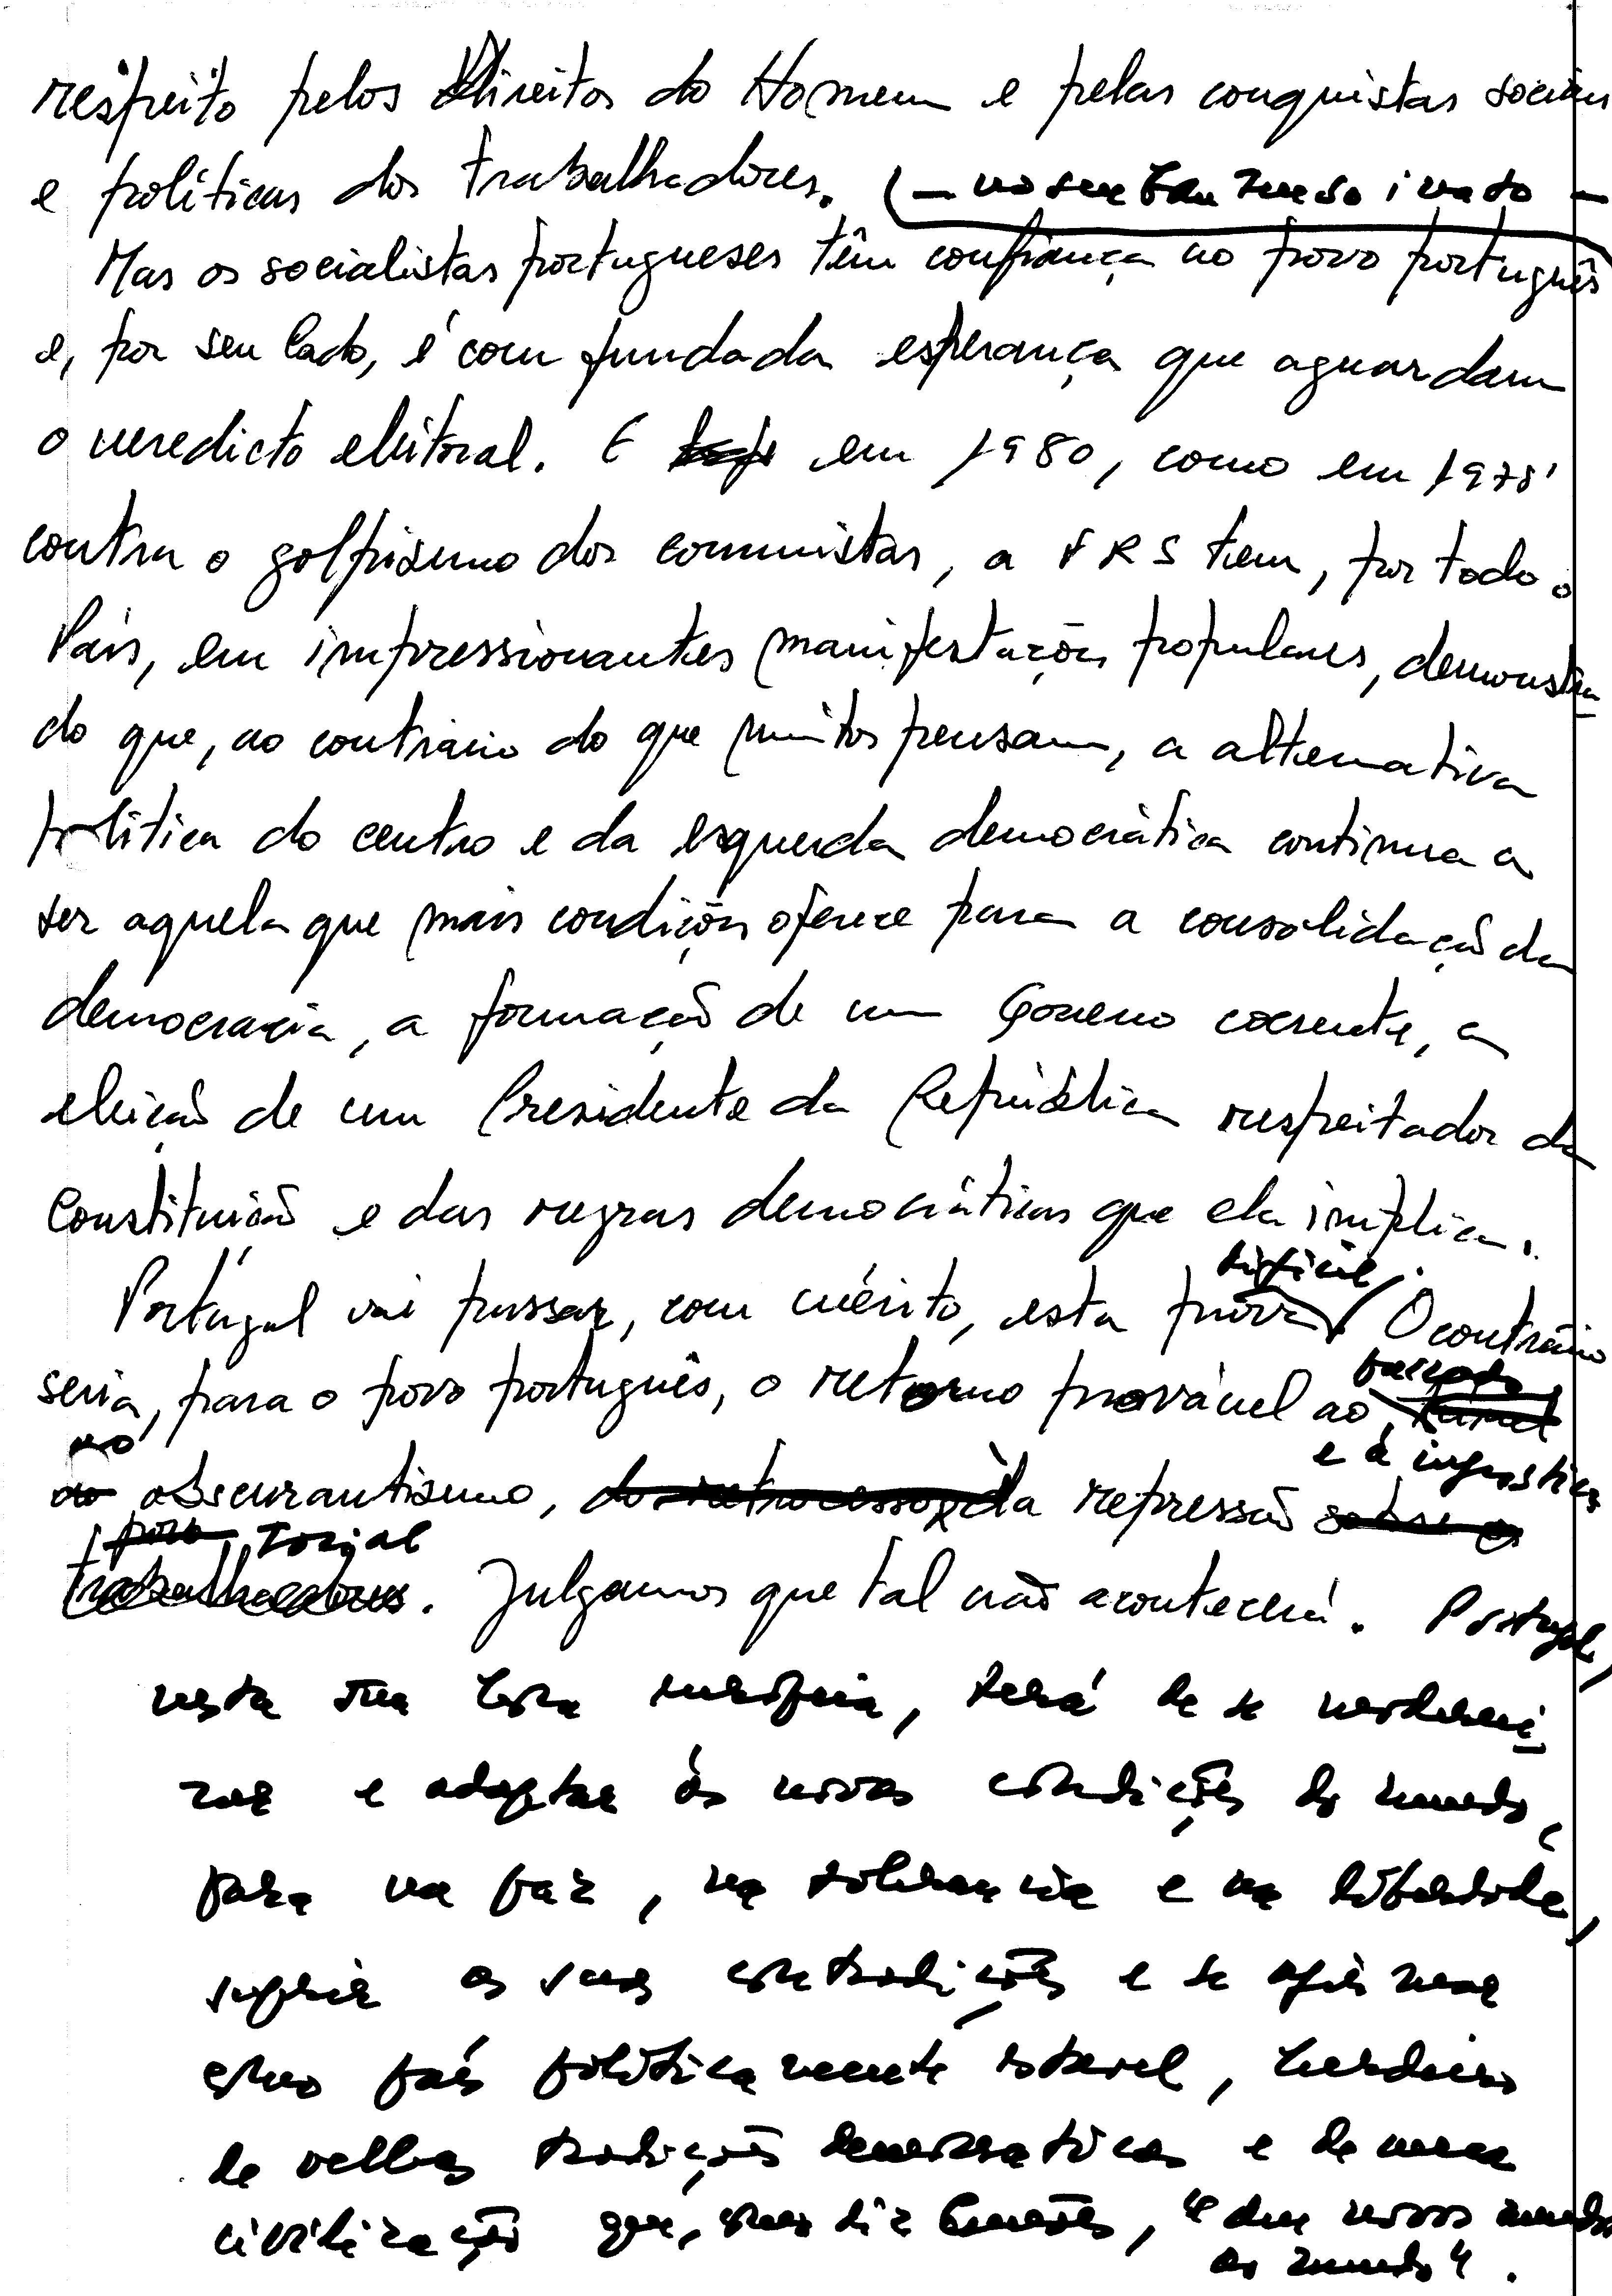 respeito pelos Direitos do Homem e pelas conquistas sociais
e políticas dos trabalhadores. (—
Mas os socialistas portugueses têm confiança no povo português
e, por seu lado, é com fundada esperança que aguardam
o veredicto eleitoral. E em 1980, como em 1975
contra o golpismo dos comunistas, a FRS tem, por todo o
País, em impressionantes manifestações populares, demonstra
do que, ao contrário do que muitos pensam, a alternativa
política do centro e da esquerda democrática continua a
ser aquela que mais condições oferece para a consolidação da
democracia, a formação de um Governo coerente, a
eleição de um Presidente da República respeitador da
Constituição e das regras democráticas que ela implica.
difícil
Portugal vai passar, com mérito, esta prova. O contrário
passado
seria, para o povo português, o retorno provável ao
ao
e à injustiça
obscurantismo, da repressão
social
. Julgamos que tal não acontecerá. Portugal,
nesta sua hora europeia, terá de se moderni
zar e adaptar às novas condições do mundo,
para na paz, na tolerância e na liberdade,
superar as suas contradições e se afirmar
como país politicamente estável, herdeiro
de velhas tradições democráticas e de uma
civilização que, como diz Camões, "deu novos mundos
ao mundo".